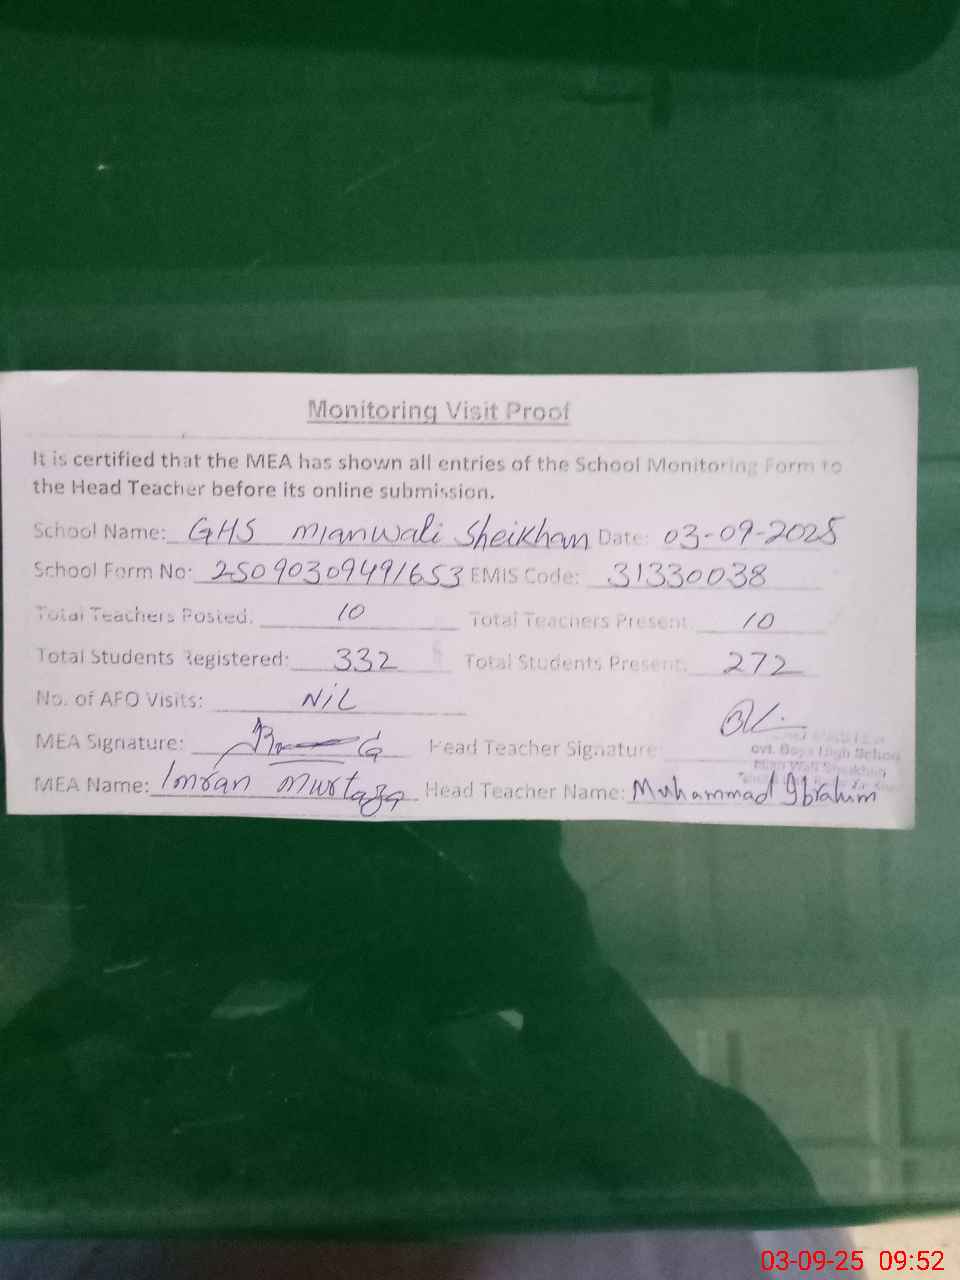 Monitoring Visit Proof
It is certified that the MEA has shown all entries of the School Monitoring Form to
the Head Teacher before its online submission.
School Name: GHS Mianwali Sheikhan Date: 03-09-2025
School Form No: 25090309491653 EMIS Code: 31330038
Total Teachers Posted: 10 Total Teachers Present: 10
Total Students Registered: 332 Total Students Present: 272
No. of AEO Visits: NiL
MEA Signature: Head Teacher Signature:
ovt. Boys High School
Mian Wali Sheikhan
MEA Name: Imran Murtaza Head Teacher Name: Muhammad Ibrahim
03-09-25 09:52